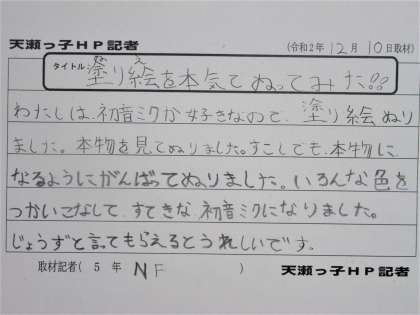 天瀬っ子HP記者 (令和2年 12月 10日取材)
タイトル: 塗り絵を本気でぬってみた!!
わたしは、初音ミクが好きなので、塗り絵ぬり
ました。本物を見てぬりました。すこしでも、本物に
なるようにがんばってぬりました。いろんな色を
つかいこなして、すてきな、初音ミクになりました。
じょうずと言ってもらえるとうれしいです。
取材記者( 5 年 NF )
天瀬っ子HP記者